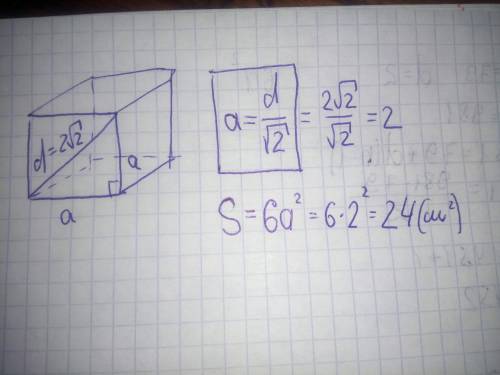 d=2√2
a
a
a = d/√2 = 2√2/√2 = 2
S = 6a² = 6·2² = 24 (см²)